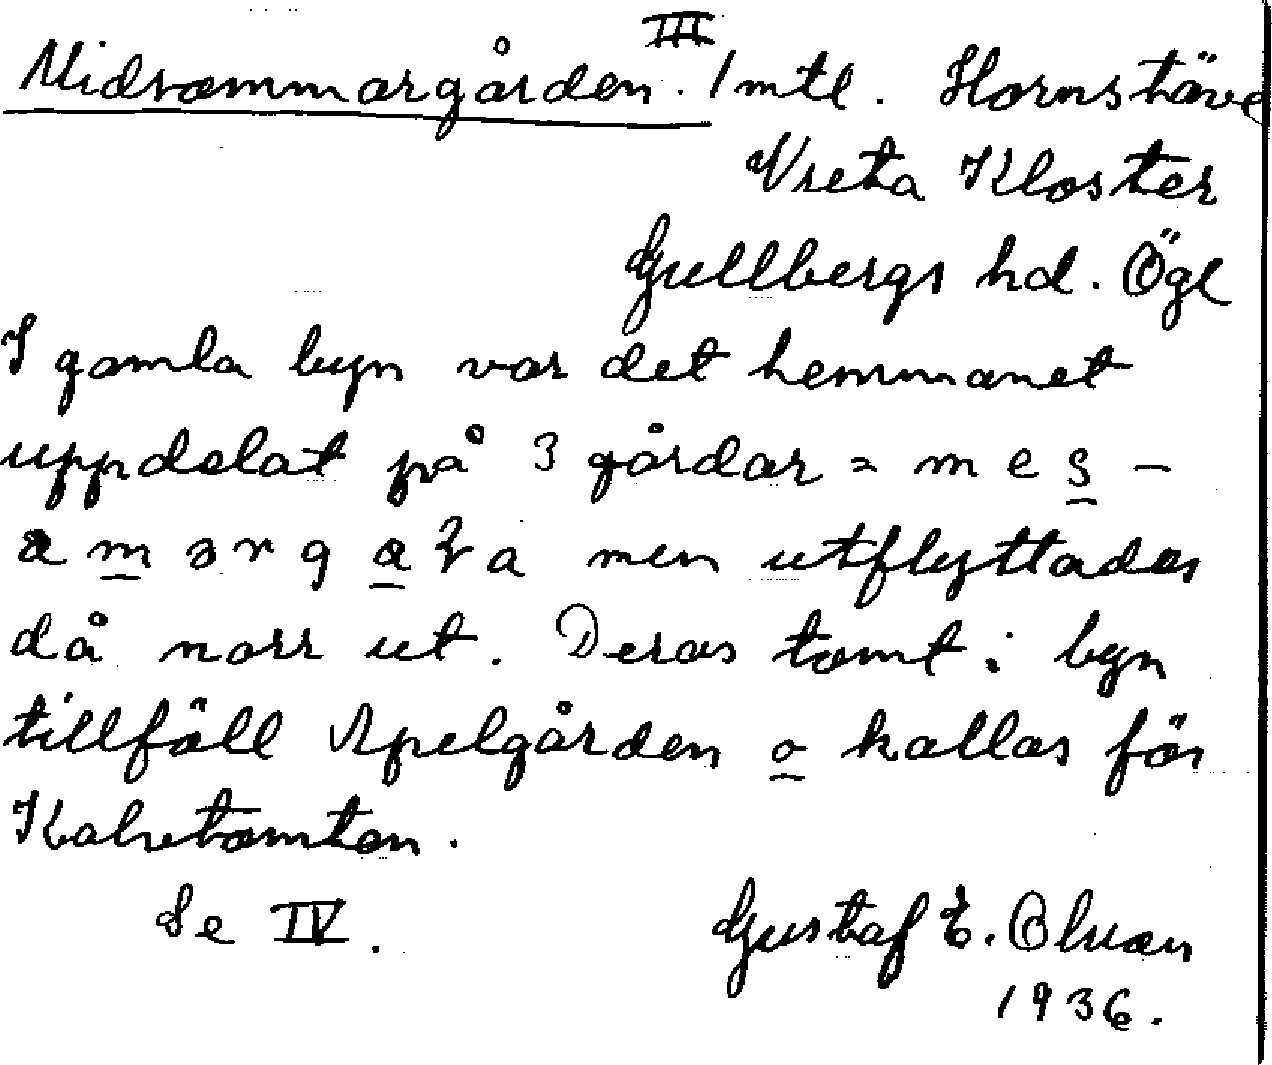 III
Midsommargården. 1 mtl. Hornstäve
Vreta Kloster
Gullbergs hd. Ögl
I gamla byn var det hemmanet
uppdelat på 3 gårdar = m e s -
a m ɜ r g a ɽ a men utflyttades
då norr ut. Deras tomt i byn
tillföll Apelgården o kallas för
Kalvetomten.
Se IV.
Gustaf E. Olsson
1936.